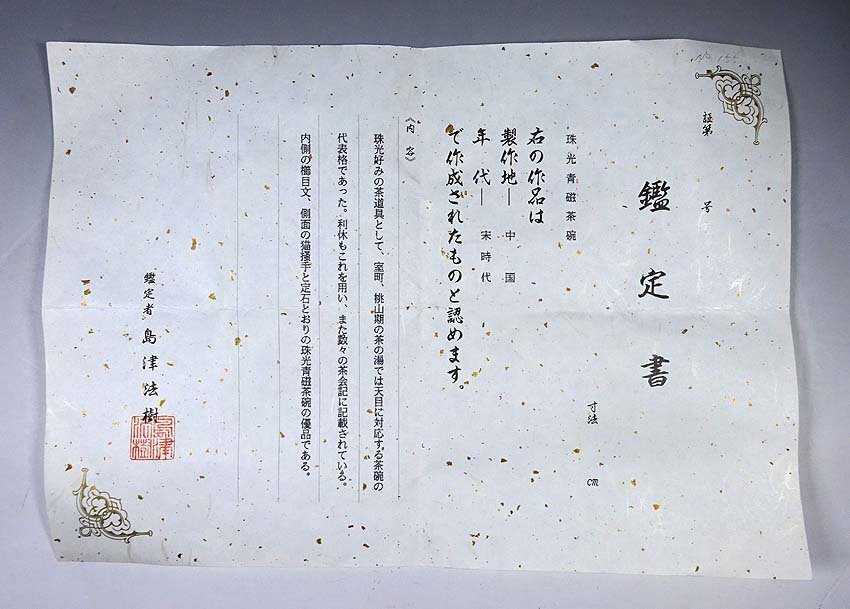 No 155
証第 号
鑑定書
寸法 cm
珠光青磁茶碗
右の作品は
製作地― 中国
年代― 宋時代
で作成されたものと認めます。
《内容》
珠光好みの茶道具として、室町、桃山期の茶の湯では天目に対応する茶碗の
代表格であった。利休もこれを用い、また数々の茶会記に記載されている。
内側の櫛目文、側面の猫掻手と定石とおりの珠光青磁茶碗の優品である。
鑑定者 島津法樹
島津法樹